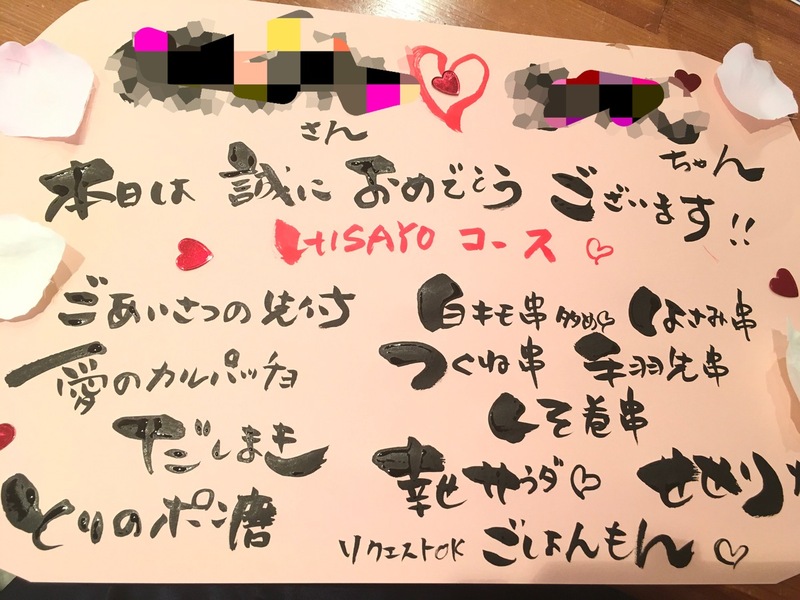 さん
ちゃん
本日は 誠に おめでとう ございます!!
HISAYO コース
ごあいさつの先付
愛のカルパッチョ
だしまき
とりのポン酢
白キモ串 多め
はさみ串
つくね串 手羽先串
しそ巻串
幸せサラダ
せせり
リクエストOK ごはんもん